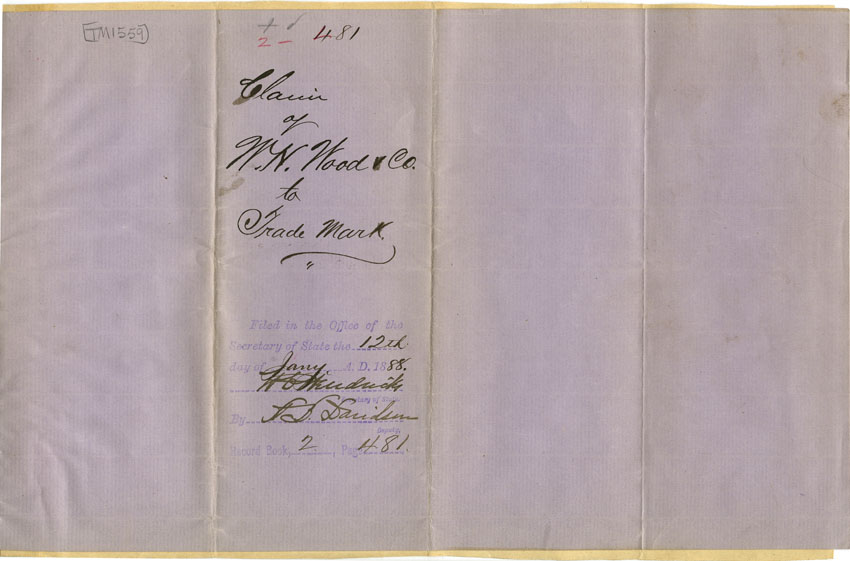 TM1559
2 - 481
Claim
of
W. H. Wood & Co.
to
Trade Mark.
"
Filed in the Office of the
Secretary of State the 12th
day of Jany A. D. 1888.
W C Hendricks
Secretary of State
By
Deputy.
Record Book, 2, Page 481.